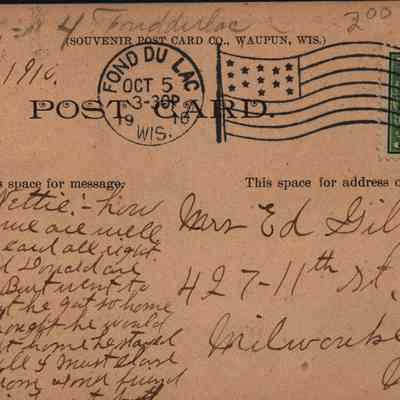 4 Fonddulac
3⁰⁰
(SOUVENIR POST CARD CO., WAUPUN, WIS.)
1910.
FOND DU LAC
OCT 5
3-30P
1910
WIS.
POST CARD.
s space for message.
This space for address o
Nettie:- how
we are well
all right
Donald are
Burt went to
he got so home
thought he would
home he stayed
I must close
from your friend
Mrs Ed Gil
427-11th St.
Milwauke